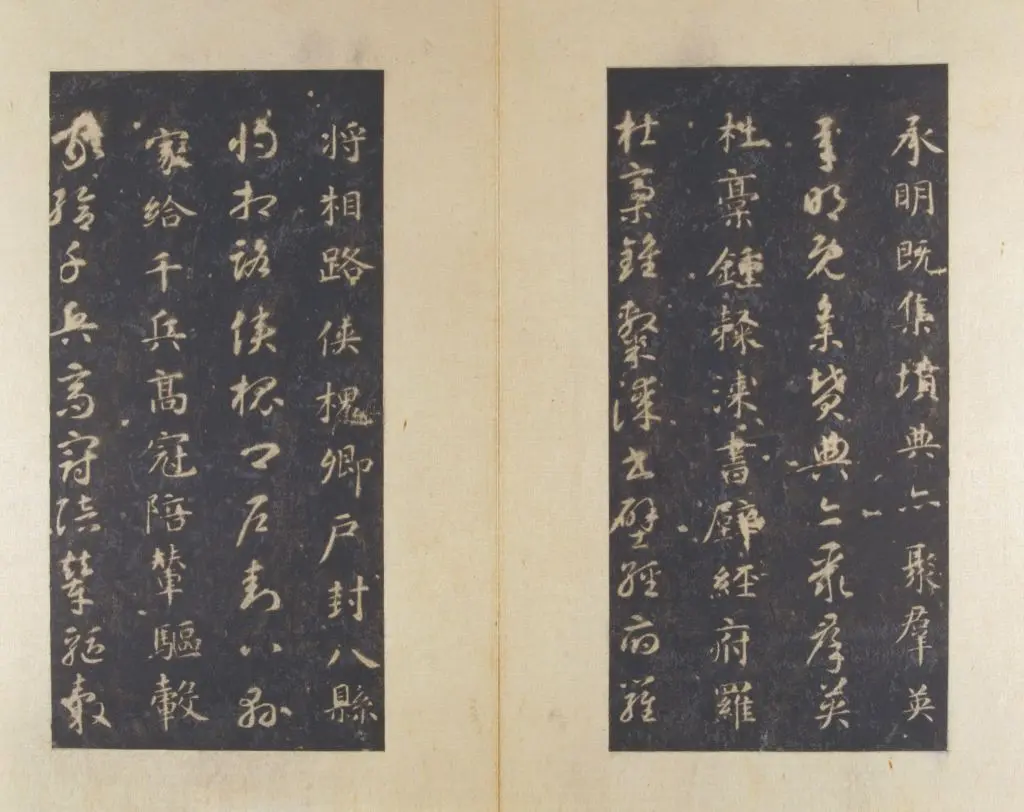 承明既集墳典亦聚羣英
承明既集墳典亦聚羣英
杜藁鍾隸漆書壁經府羅
杜藁鍾隸漆書壁經府羅
將相路俠槐卿戶封八縣
將相路俠槐卿戶封八縣
家給千兵高冠陪輦驅轂
家給千兵高冠陪輦驅轂